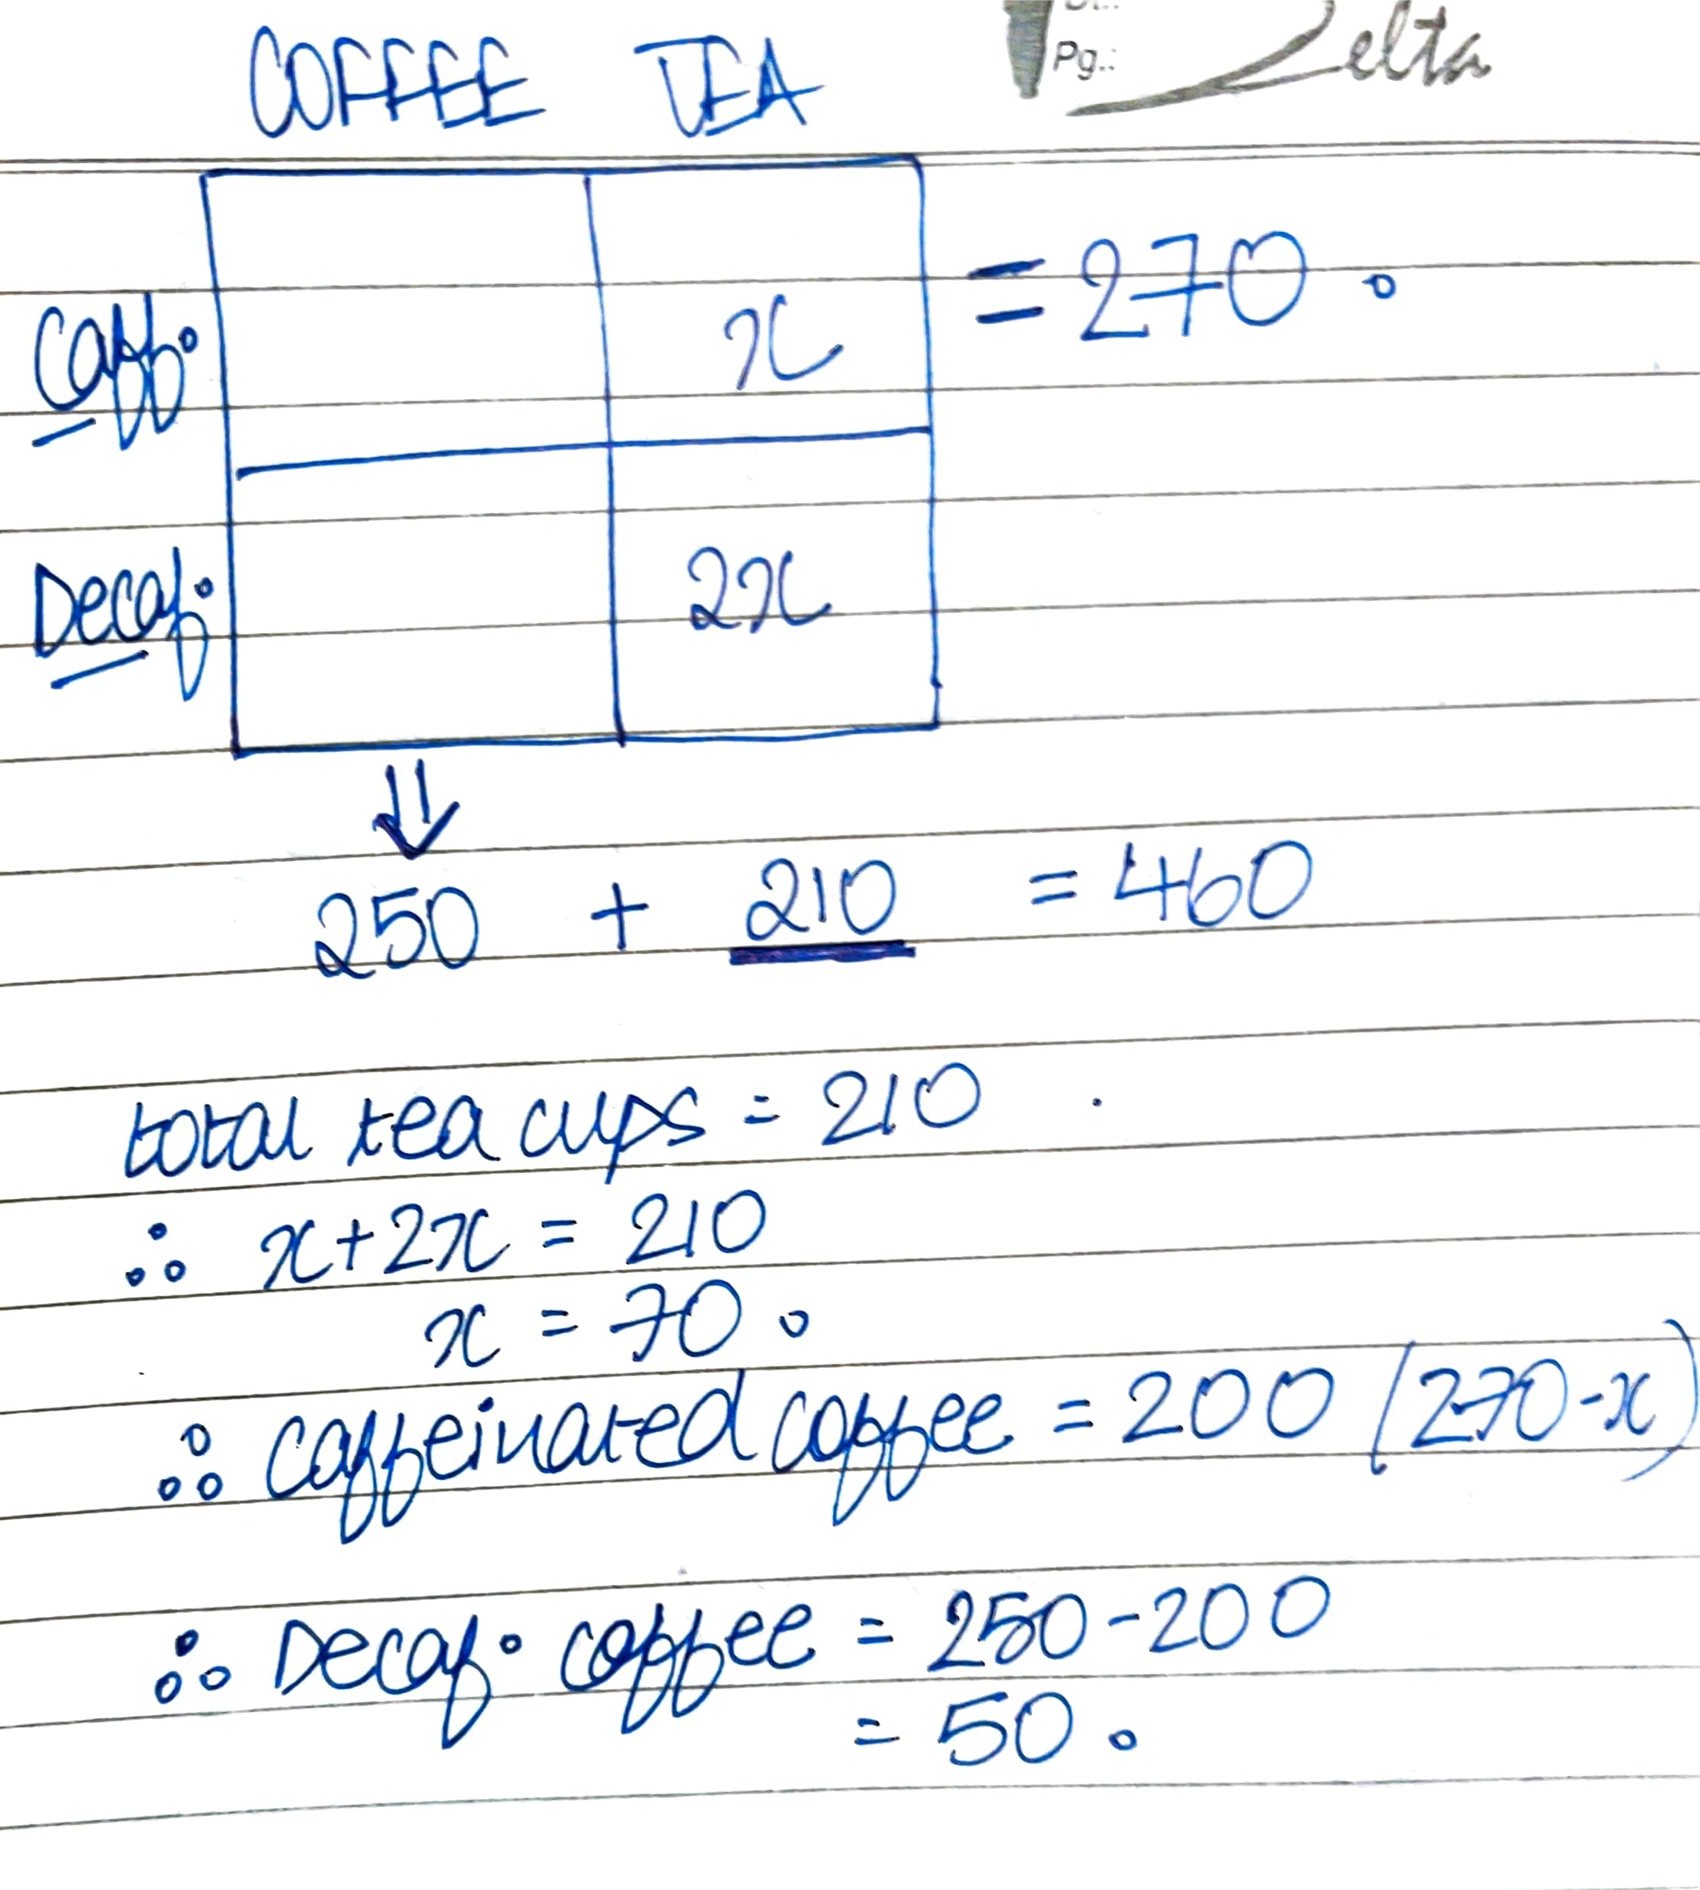 Pg.: Delta
COFFEE TEA
Caff. x = 270.
Decaf. 2x
250 + 210 = 460
total tea cups = 210
∴ x+2x = 210
x = 70.
∴ caffeinated coffee = 200 (270-x)
∴ Decaf. coffee = 250-200
= 50.